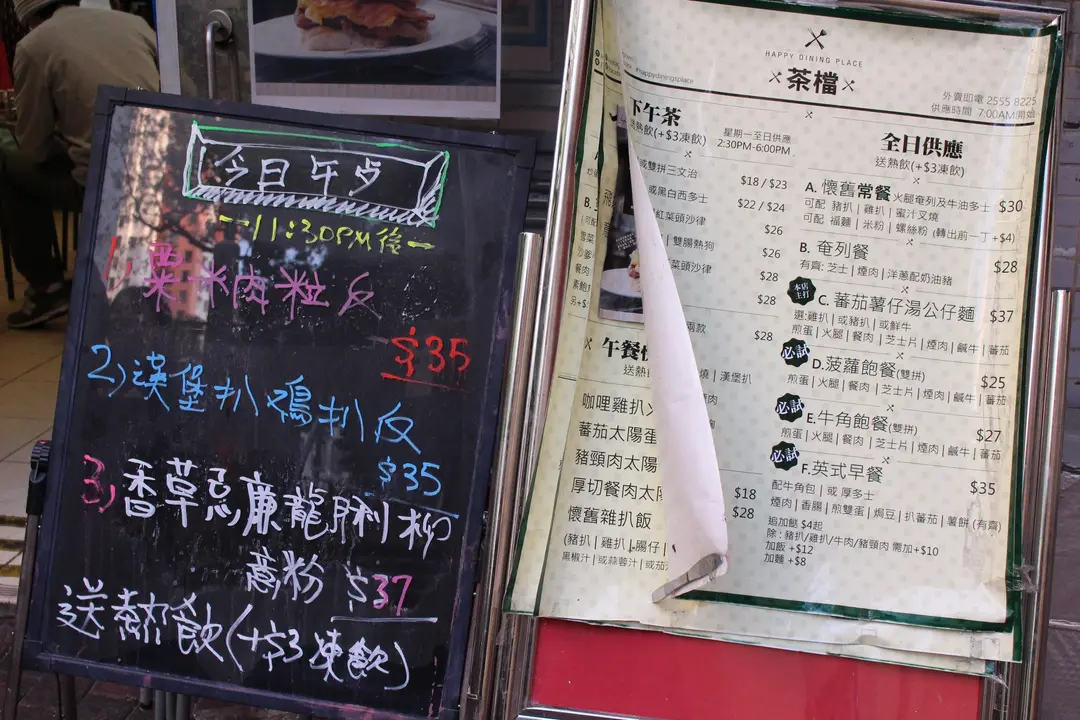 今日午歺
-11:30PM後-
1, 粟米肉粒反
$35
2) 漢堡扒鷄扒反
$35
3) 香草忌廉龍脷柳
意粉 $37
送熱飲(+$3凍飲)
HAPPY DINING PLACE
茶檔
外賣即電 2555 8225
供應時間 7:00AM開始
happydiningplace
下午茶
送熱飲(+$3凍飲)
星期一至日供應
2:30PM-6:00PM
或雙拼三文治
$18 / $23
或黑白西多士
$22 / $24
紅菜頭沙律
$26
雙腸熱狗
$26
菜頭沙律
$28
$28
兩款
$28
午餐
送熱
燒 | 漢堡扒
咖哩雞扒
蕃茄太陽蛋
豬頸肉太陽
厚切餐肉太陽
$18
懷舊雜扒飯
$28
(豬扒 | 雞扒 | 腸仔
黑椒汁 | 或蒜蓉汁 | 或茄
全日供應
送熱飲(+$3凍飲)
A. 懷舊常餐 火腿奄列及牛油多士 $30
可配 豬扒 | 雞扒 | 蜜汁叉燒
可配 福麵 | 米粉 | 螺絲粉 (轉出前一丁+$4)
B. 奄列餐
$28
有齊: 芝士 | 煙肉 | 洋蔥配奶油豬
本店主打
C. 蕃茄薯仔湯公仔麵 $37
選:雞扒 | 或豬扒 | 或鮮牛
煎蛋 | 火腿 | 餐肉 | 芝士片 | 煙肉 | 鹹牛 | 蕃茄
必試
D. 菠蘿飽餐(雙拼)
$25
煎蛋 | 火腿 | 餐肉 | 芝士片 | 煙肉 | 鹹牛 | 蕃茄
必試
E. 牛角飽餐(雙拼)
$27
煎蛋 | 火腿 | 餐肉 | 芝士片 | 煙肉 | 鹹牛 | 蕃茄
必試
F. 英式早餐
$35
配牛角包 | 或 厚多士
煙肉 | 香腸 | 煎雙蛋 | 焗豆 | 扒蕃茄 | 薯餅 (有齊)
追加餸 $4起
除 : 豬扒/雞扒/牛肉/豬頸肉 需加+$10
加飯 +$12
加麵 +$8